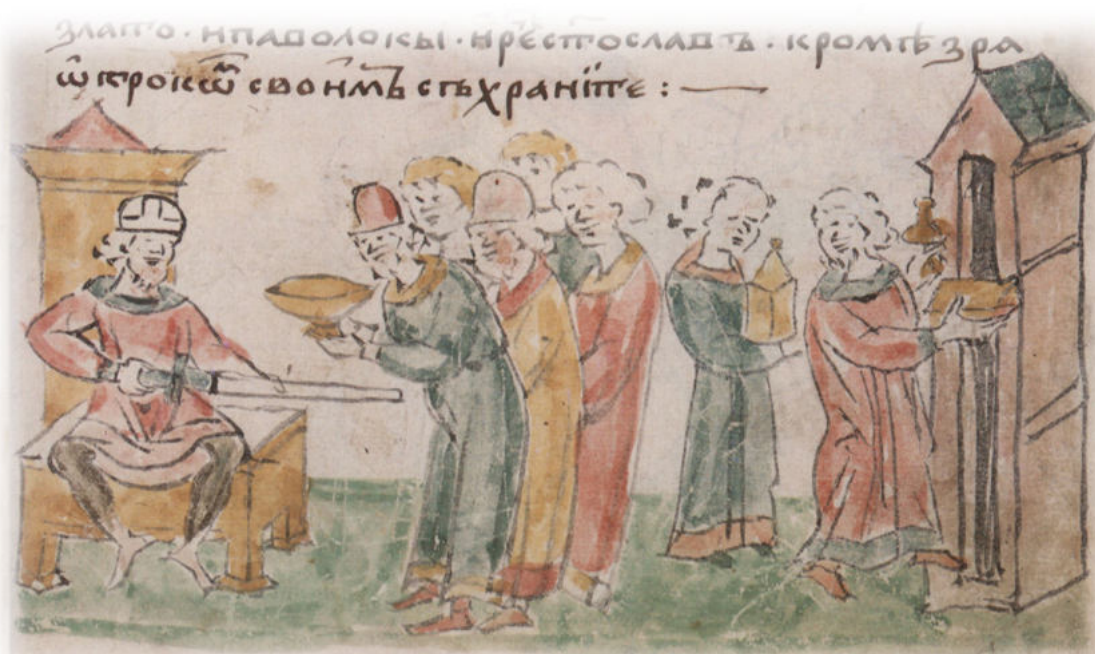 злато · ипаволокы · ирⷱ҇е ст҃ославъ · кромѣ зрѧ
ѿтрокѡⷨ своимъ съхраніте : —